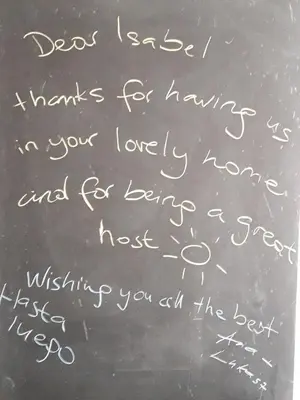 Dear Isabel
thanks for having us
in your lovely home
and for being a great
host
Wishing you all the best
Hasta
luego
Ana +
Lukas